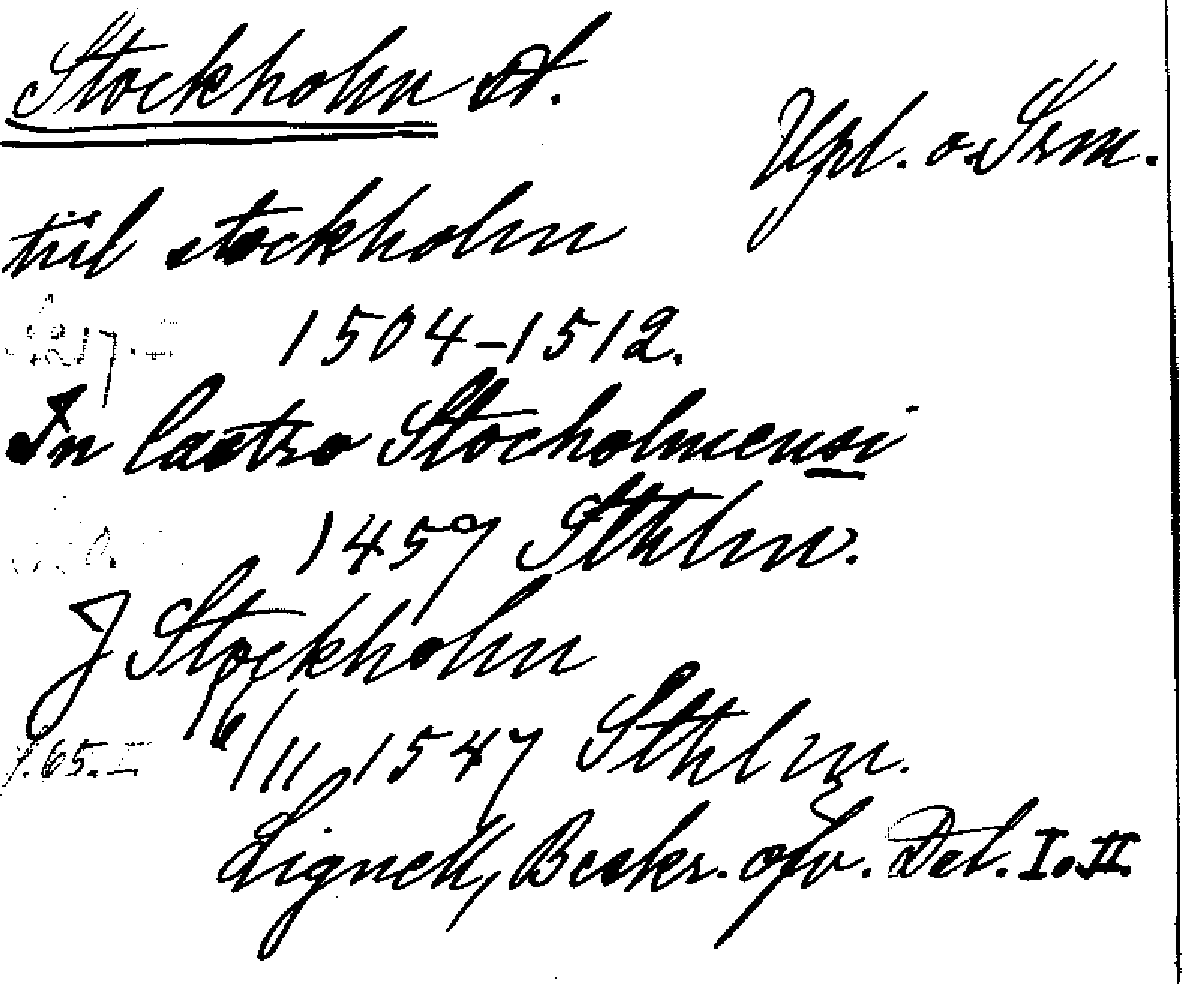 Stockholm st.
Upl. o. Srm.
tiil stockholm
1504–1512.
In castro Stocholmensi
1457 Sthlm.
J Stockholm
s. 65. I 16/11 1547 Sthlm.
Lignell, Beskr. öfv. Dal. I. II.